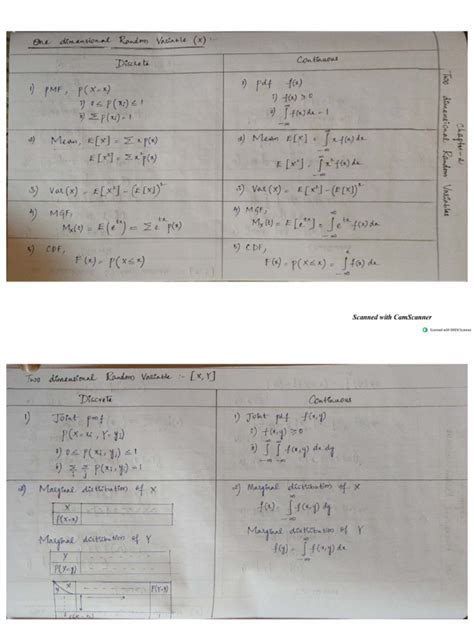 One dimensional Random Variable (X) :-
Discrete
Continuous
1) PMF, P(X=x)
i) 0 ≤ P(xi) ≤ 1
ii) ΣP(xi) = 1
1) pdf f(x)
i) f(x) ≥ 0
ii) ∫_{-∞}^{∞} f(x) dx = 1
2) Mean, E[X] = Σ x p(x)
E[X²] = Σ x² p(x)
2) Mean E[X] = ∫_{-∞}^{∞} x f(x) dx
E[X²] = ∫_{-∞}^{∞} x² f(x) dx
3) Var(x) = E[X²] - (E[X])²
3) Var(x) = E[X²] - (E[X])²
4) MGF,
Mx(t) = E(e^{tx}) = Σ e^{tx} p(x)
4) MGF,
Mx(t) = E[e^{tx}] = ∫_{-∞}^{∞} e^{tx} f(x) dx
5) CDF,
F(x) = P(X ≤ x)
5) CDF,
F(x) = P(X ≤ x) = ∫_{-∞}^{x} f(x) dx
Chapter-2
Two dimensional Random Variables
Scanned with CamScanner
Scanned with OKEN Scanner
Two dimensional Random Variable :- [X, Y]
Discrete
Continuous
1) Joint pmf
P(X=xi, Y=yj)
i) 0 ≤ P(xi, yj) ≤ 1
ii) Σ Σ P(xi, yj) = 1
1) Joint pdf f(x,y)
i) f(x,y) ≥ 0
ii) ∫_{-∞}^{∞} ∫_{-∞}^{∞} f(x,y) dx dy
2) Marginal distribution of X
X
P(X=x)
Marginal distribution of Y
Y
P(Y=y)
2) Marginal distribution of X
f(x) = ∫_{-∞}^{∞} f(x,y) dy
Marginal distribution of Y
f(y) = ∫_{-∞}^{∞} f(x,y) dx
Y X
P(Y=y)